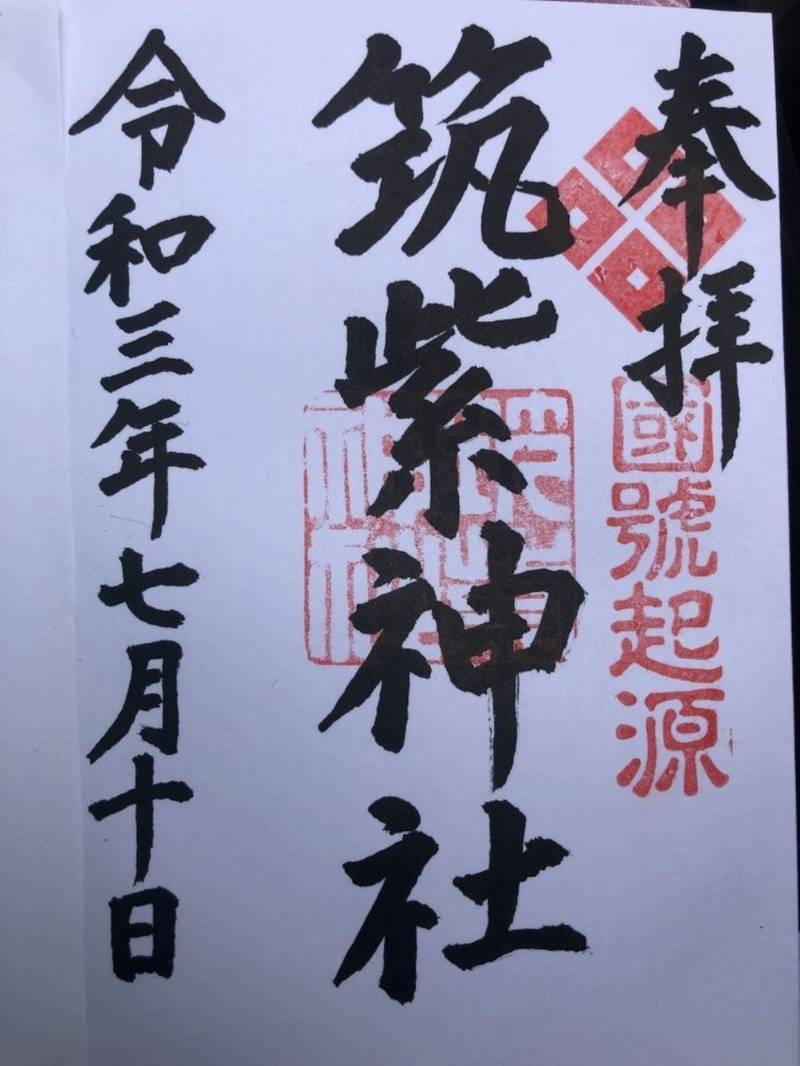 奉拝
國號起源
筑紫神社
令和三年七月十日